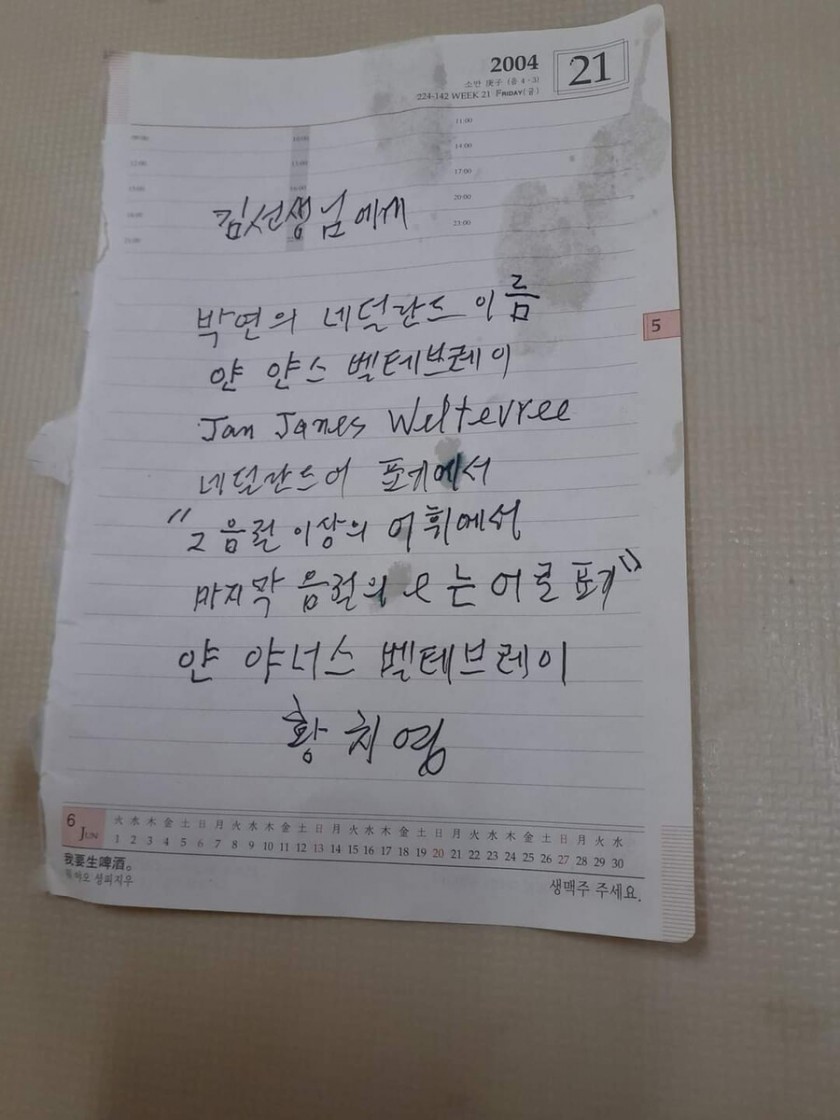 2004 21
소만 庚子 (음 4·3)
224-142 WEEK 21 FRIDAY(금)
11:00
14:00
17:00
20:00
23:00
김선생님에게
박연의 네덜란드 이름
얀 얀스 벨테브레이
Jan Janes Weltevree
네덜란드어 표기에서
"2음절 이상의 어휘에서
마지막 음절의 e는 어로 표기"
얀 야너스 벨테브레이
황치영
5
6 JUN
火 水 木 金 土 日 月 火 水 木 金 土 日 月 火 水 木 金 土 日 月 火 水 木 金 土 日 月 火 水
1 2 3 4 5 6 7 8 9 10 11 12 13 14 15 16 17 18 19 20 21 22 23 24 25 26 27 28 29 30
我要生啤酒。
생맥주 주세요.